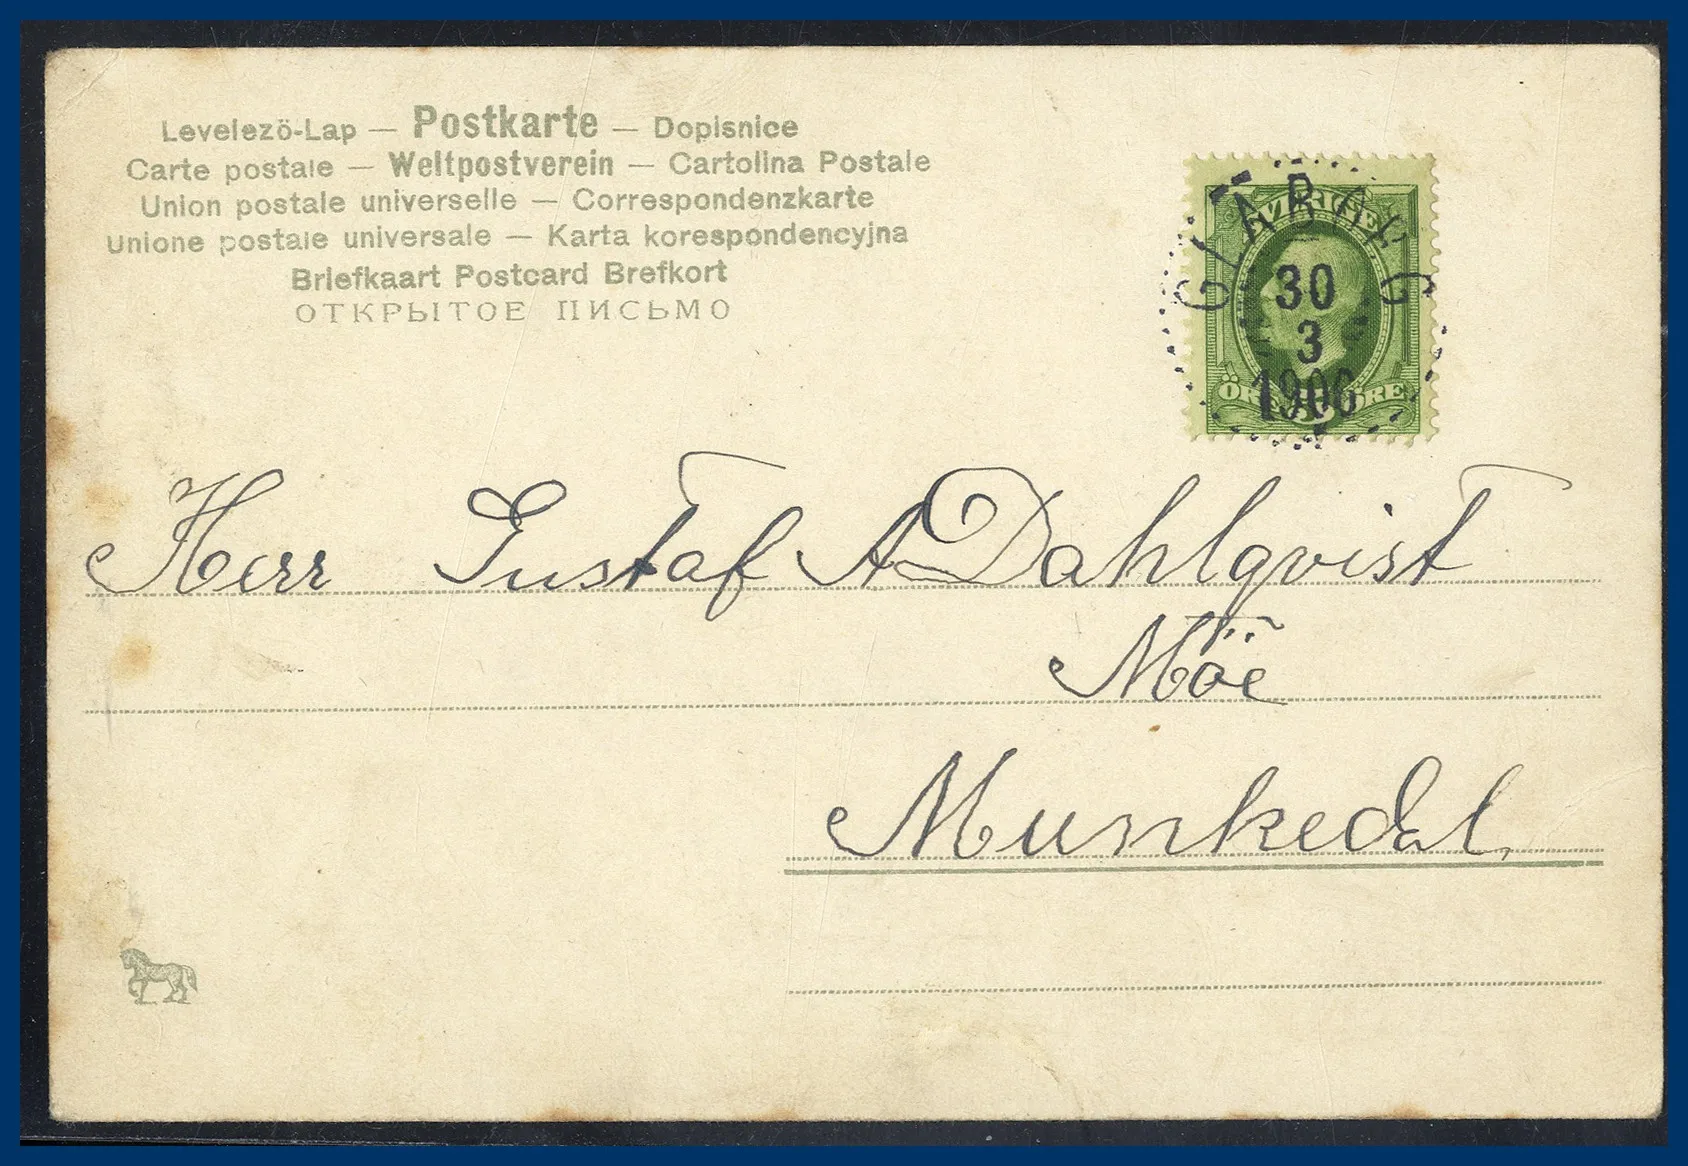 Levelezö-Lap — Postkarte — Dopisnice
Carte postale — Weltpostverein — Cartolina Postale
Union postale universelle — Correspondenzkarte
Unione postale universale — Karta korespondencyjna
Briefkaart Postcard Brefkort
ОТКРЫТОЕ ПИСЬМО
SVERIGE
30
3
1906
ÖRE ÖRE
Herr Gustaf A Dahlqvist
Möe
Munkedal